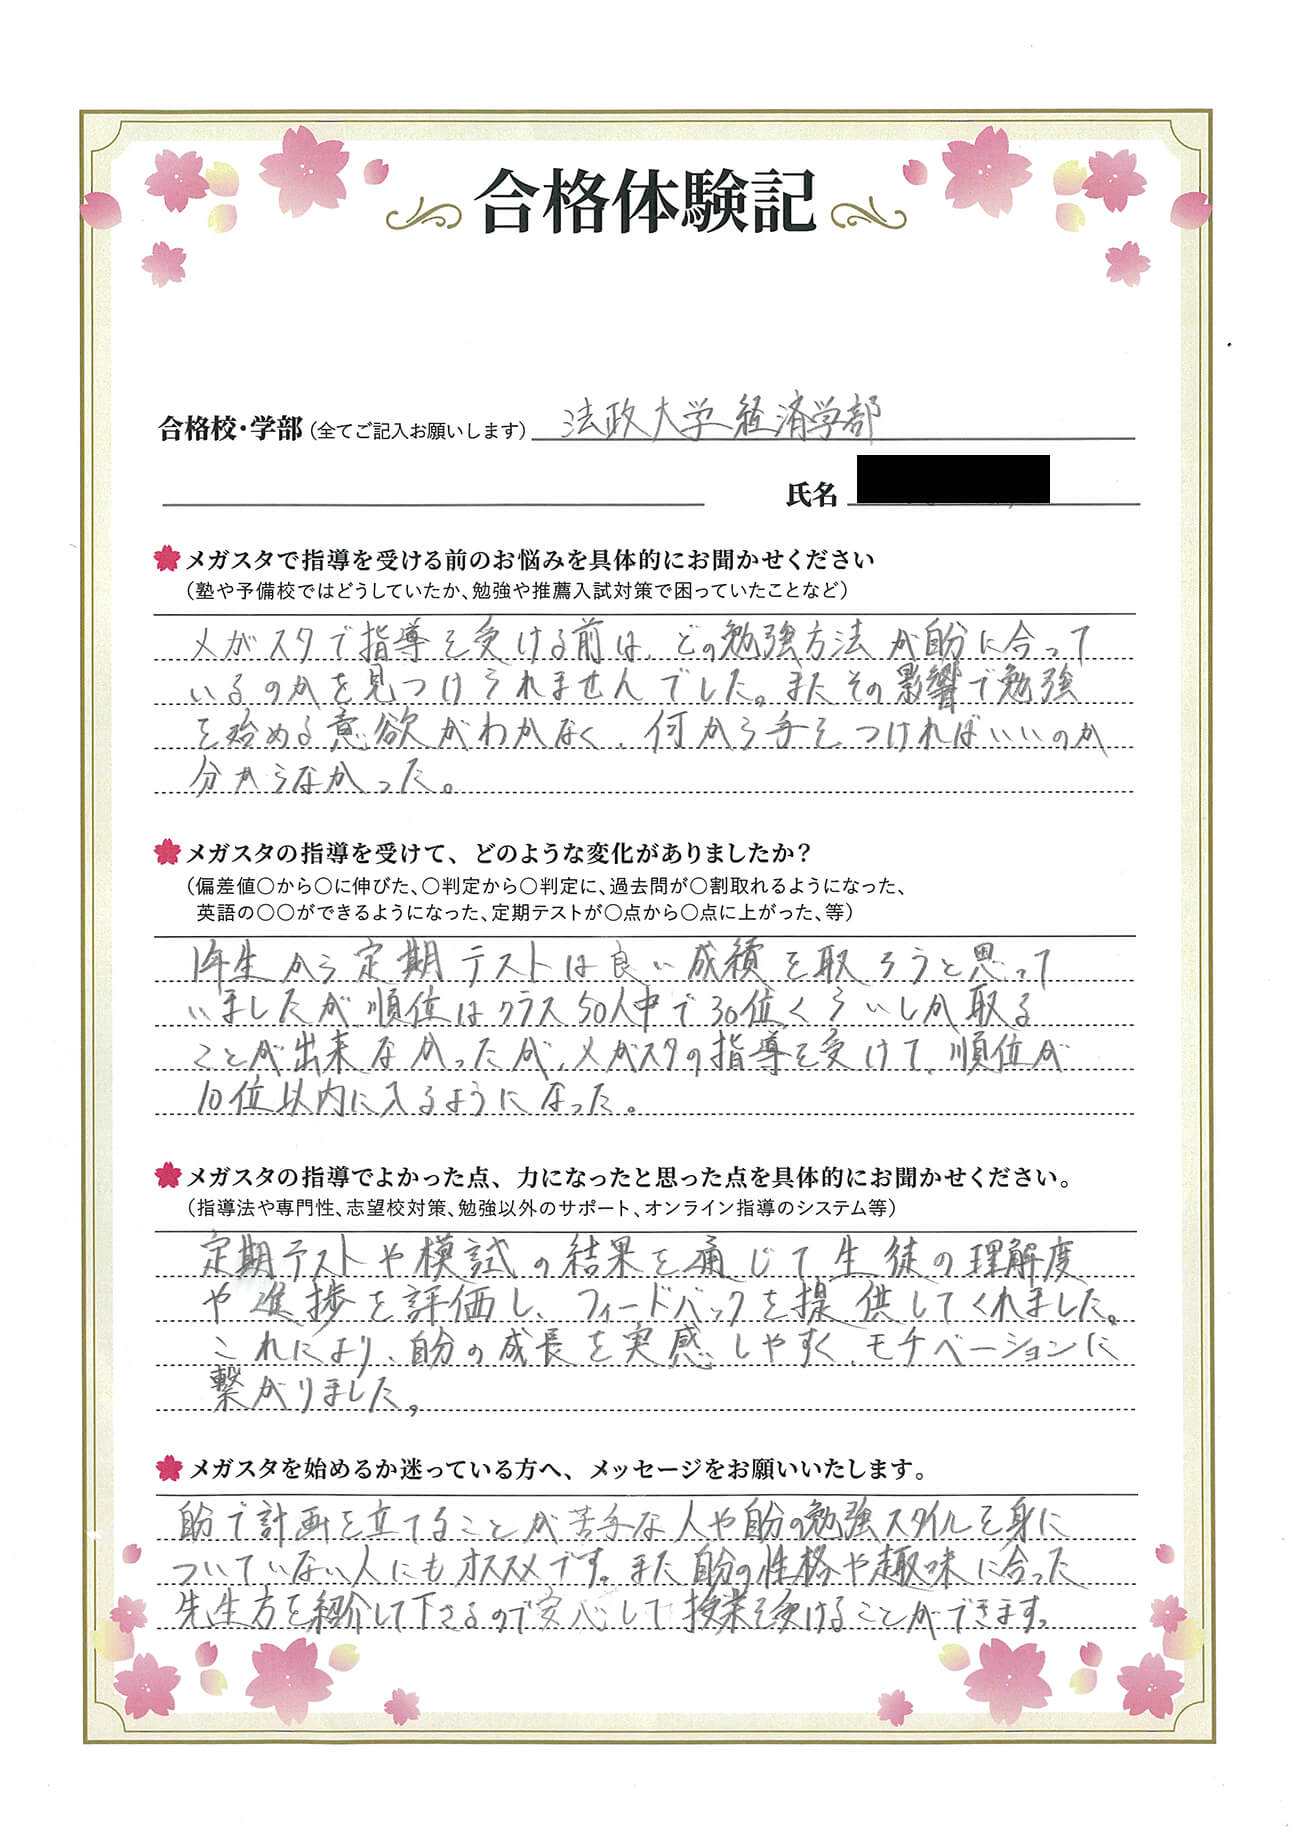 合格体験記
合格校・学部(全てご記入お願いします) 法政大学経済学部
氏名
メガスタで指導を受ける前のお悩みを具体的にお聞かせください
(塾や予備校ではどうしていたか、勉強や推薦入試対策で困っていたことなど)
メガスタで指導を受ける前は、どの勉強方法が自分に合って
いるのかを見つけられませんでした。またその影響で勉強
を始める意欲がわかなく、何から手をつければいいのか
分からなかった。
メガスタの指導を受けて、どのような変化がありましたか?
(偏差値○から○に伸びた、○判定から○判定に、過去問が○割取れるようになった、
英語の○○ができるようになった、定期テストが○点から○点に上がった、等)
1年生から定期テストは良い成績を取ろうと思って
いましたが、順位はクラス50人中で30位くらいしか取る
ことが出来なかったが、メガスタの指導を受けて、順位が
10位以内に入るようになった。
メガスタの指導でよかった点、力になったと思った点を具体的にお聞かせください。
(指導法や専門性、志望校対策、勉強以外のサポート、オンライン指導のシステム等)
定期テストや模試の結果を通じて生徒の理解度
や進捗を評価し、フィードバックを提供してくれました。
これにより、自分の成長を実感しやすく、モチベーションに
繋がりました。
メガスタを始めるか迷っている方へ、メッセージをお願いいたします。
自分で計画を立てることが苦手な人や自分の勉強スタイルを身に
ついていない人にもオススメです。また自分の性格や趣味に合った
先生方を紹介して下さるので安心して授業を受けることができます。